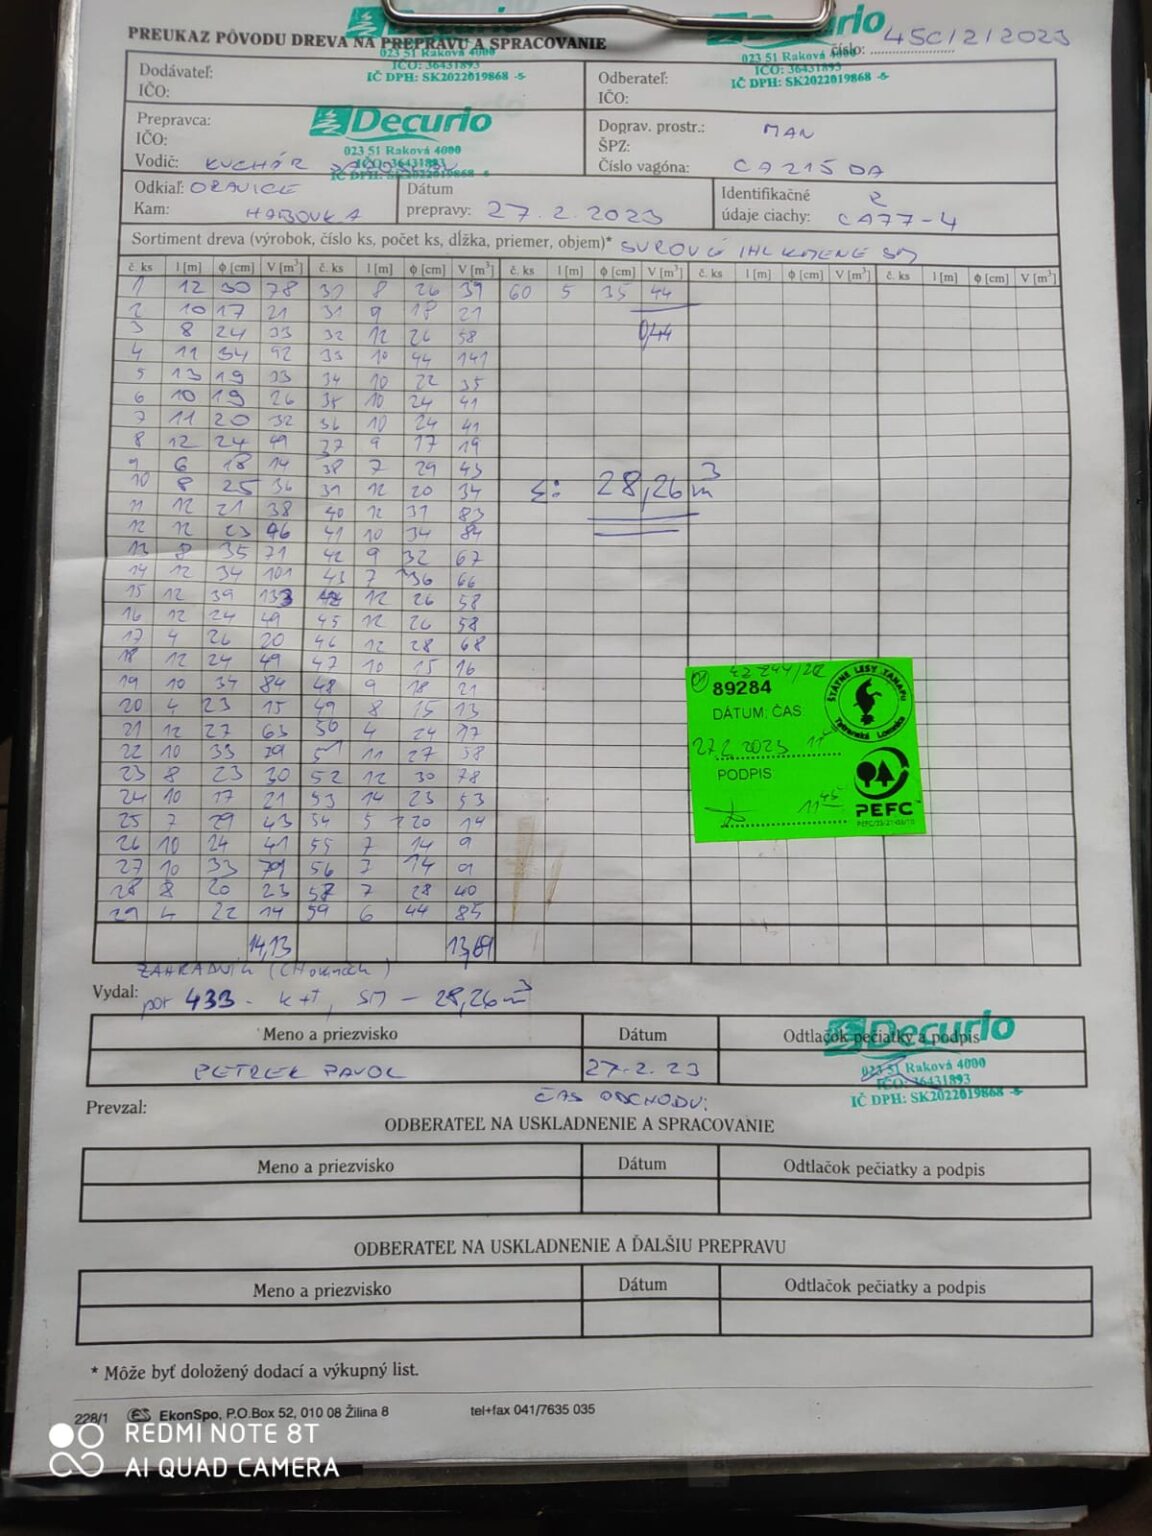 Decurio
PREUKAZ PÔVODU DREVA NA PREPRAVU A SPRACOVANIE
023 51 Raková 4000
IČO: 36431893
IČ DPH: SK2022019868 -5-
023 51 Raková 4000
IČO: 36431893
IČ DPH: SK2022019868 -5-
číslo: 45C/2/2023
Dodávateľ:
IČO:
Odberateľ:
IČO:
Prepravca:
IČO:
Vodič: KUCHÁR
Decurio
023 51 Raková 4000
IČO: 36431893
IČ DPH: SK2022019868 -5-
Doprav. prostr.: MAN
ŠPZ:
Číslo vagóna: CA215DA
Odkiaľ: ORAVICE
Kam: HABOVKA
Dátum
prepravy: 27.2.2023
Identifikačné
údaje ciachy: CA77-4
Sortiment dreva (výrobok, číslo ks, počet ks, dĺžka, priemer, objem)* SUROVÉ IHL KMENE SM
č. ks l [m] ϕ [cm] V [m³] č. ks l [m] ϕ [cm] V [m³] č. ks l [m] ϕ [cm] V [m³] č. ks l [m] ϕ [cm] V [m³] č. ks l [m] ϕ [cm] V [m³]
1 12 30 78 30 8 26 39 60 5 35 44
2 10 17 21 31 9 18 21
3 8 24 33 32 12 26 58 0,44
4 11 34 92 33 10 44 141
5 13 19 33 34 10 22 35
6 10 19 26 35 10 24 41
7 11 20 32 36 10 24 41
8 12 24 49 37 9 17 19
9 6 18 14 38 7 29 43
10 8 25 36 39 12 20 34 Σ: 28,26 m³
11 12 21 38 40 12 31 83
12 12 23 46 41 10 34 84
13 8 35 71 42 9 32 67
14 12 34 101 43 7 36 66
15 12 39 133 44 12 26 58
16 12 24 49 45 12 26 58
17 4 26 20 46 12 28 68
18 12 24 49 47 10 15 16
19 10 34 84 48 9 18 21
20 4 23 15 49 8 15 13
21 12 27 63 50 4 24 17
22 10 33 79 51 11 27 58
23 8 23 30 52 12 30 78
24 10 17 21 53 14 23 53
25 7 29 43 54 5 20 14
26 10 24 41 55 7 14 9
27 10 33 79 56 7 14 9
28 8 20 23 57 7 28 40
29 4 22 14 59 6 44 85
14,13 13,69
89284
DÁTUM; ČAS
27.2.2023
PODPIS
11 45
ŠTÁTNE LESY TANAPU
Tatranská Lomnica
PEFC
ZAHRADNÍK
Vydal: por 433 - SM - 28,26 m³
Meno a priezvisko Dátum Odtlačok pečiatky a podpis
PETREK PAVOL 27.2.23
Decurio
023 51 Raková 4000
IČO: 36431893
IČ DPH: SK2022019868 -5-
ČAS ODCHODU:
Prevzal:
ODBERATEĽ NA USKLADNENIE A SPRACOVANIE
Meno a priezvisko Dátum Odtlačok pečiatky a podpis
ODBERATEĽ NA USKLADNENIE A ĎALŠIU PREPRAVU
Meno a priezvisko Dátum Odtlačok pečiatky a podpis
* Môže byť doložený dodací a výkupný list.
228/1 EkonSpo, P.O.Box 52, 010 08 Žilina 8 tel+fax 041/7635 035
REDMI NOTE 8T
AI QUAD CAMERA